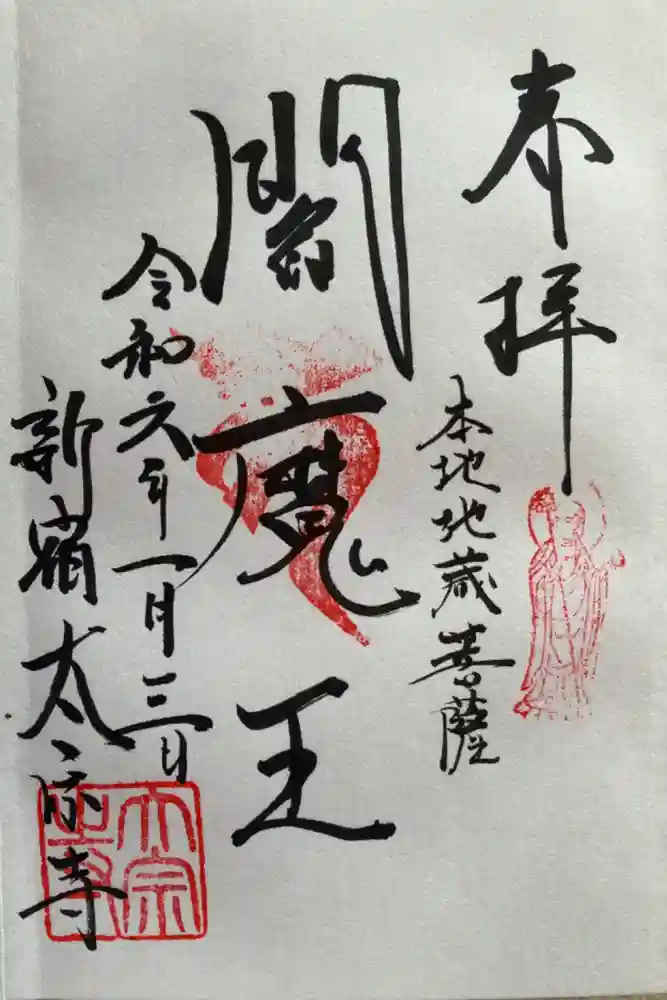 奉拝
本地地蔵菩薩
閻魔王
令和六年一月三日
新宿太宗寺
太宗寺